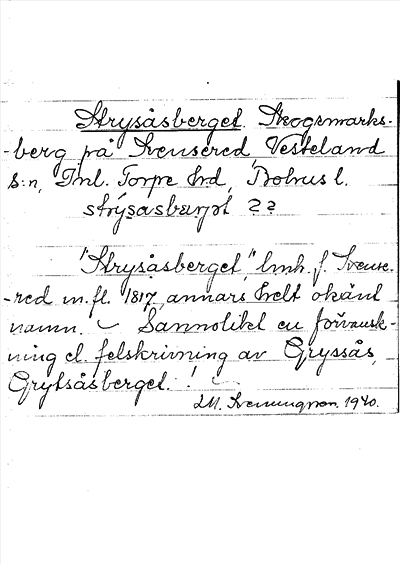 Strysåsberget. Skogsmarks-
-berg på Svensered, Vesteland
s:n, Inl. Torpe hrd, Bohus l.
strýsasbærjət ??
"Strysåsberget," lmh. f. Svense-
-red m. fl. 1817, annars helt okänt
namn. – Sannolikt en förvansk-
ning el. felskrivning av Gryssås,
Grytsåsberget. !
1940.